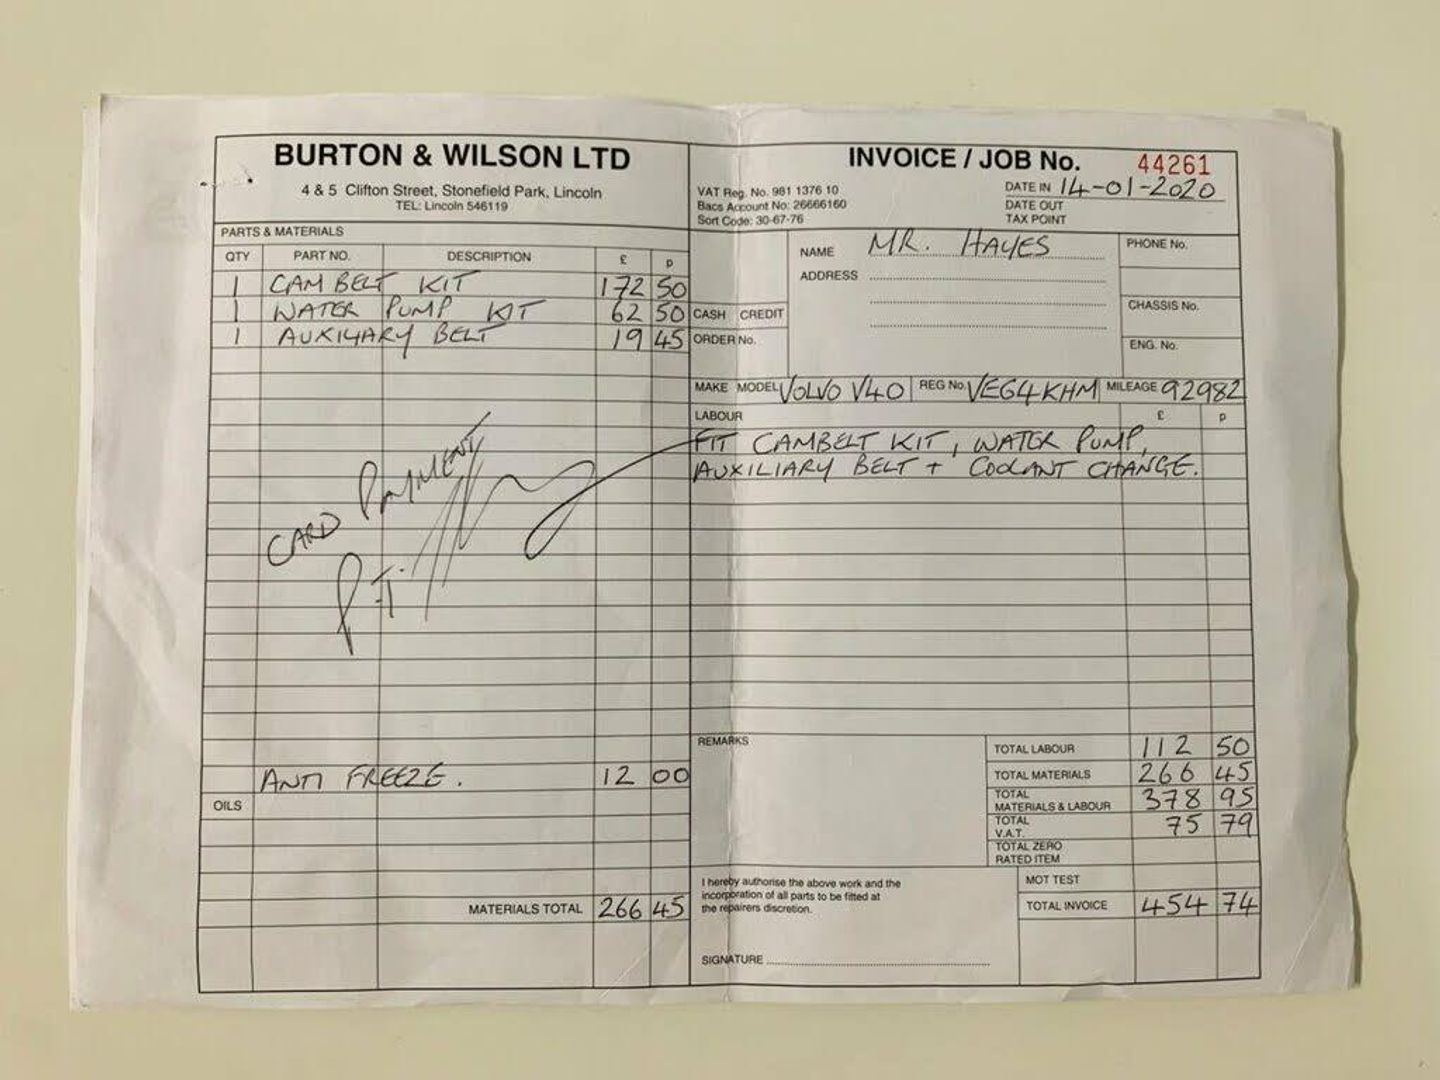 BURTON & WILSON LTD
4 & 5 Clifton Street, Stonefield Park, Lincoln
TEL: Lincoln 546119
INVOICE / JOB No. 44261
VAT Reg. No. 981 1376 10
Bacs Account No: 26666160
Sort Code: 30-67-76
DATE IN 14-01-2020
DATE OUT
TAX POINT
PARTS & MATERIALS
QTY PART NO. DESCRIPTION £ p
1 CAMBELT KIT 172 50
1 WATER PUMP KIT 62 50
1 AUXILIARY BELT 19 45
CARD PAYMENT
ANTI FREEZE. 12 00
OILS
MATERIALS TOTAL 266 45
NAME MR. HAYES
ADDRESS
PHONE No.
CHASSIS No.
ENG. No.
CASH CREDIT
ORDER No.
MAKE MODEL VOLVO V40 REG No. VE64KHM MILEAGE 92982
LABOUR £ p
FIT CAMBELT KIT, WATER PUMP,
AUXILIARY BELT + COOLANT CHANGE.
REMARKS
TOTAL LABOUR 112 50
TOTAL MATERIALS 266 45
TOTAL
MATERIALS & LABOUR 378 95
TOTAL
V.A.T. 75 79
TOTAL ZERO
RATED ITEM
MOT TEST
TOTAL INVOICE 454 74
I hereby authorise the above work and the
incorporation of all parts to be fitted at
the repairers discretion.
SIGNATURE